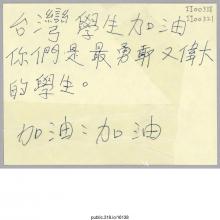 台灣學生加油
你們是最勇敢又偉大
的學生。
加油!加油
public.318.io/16138